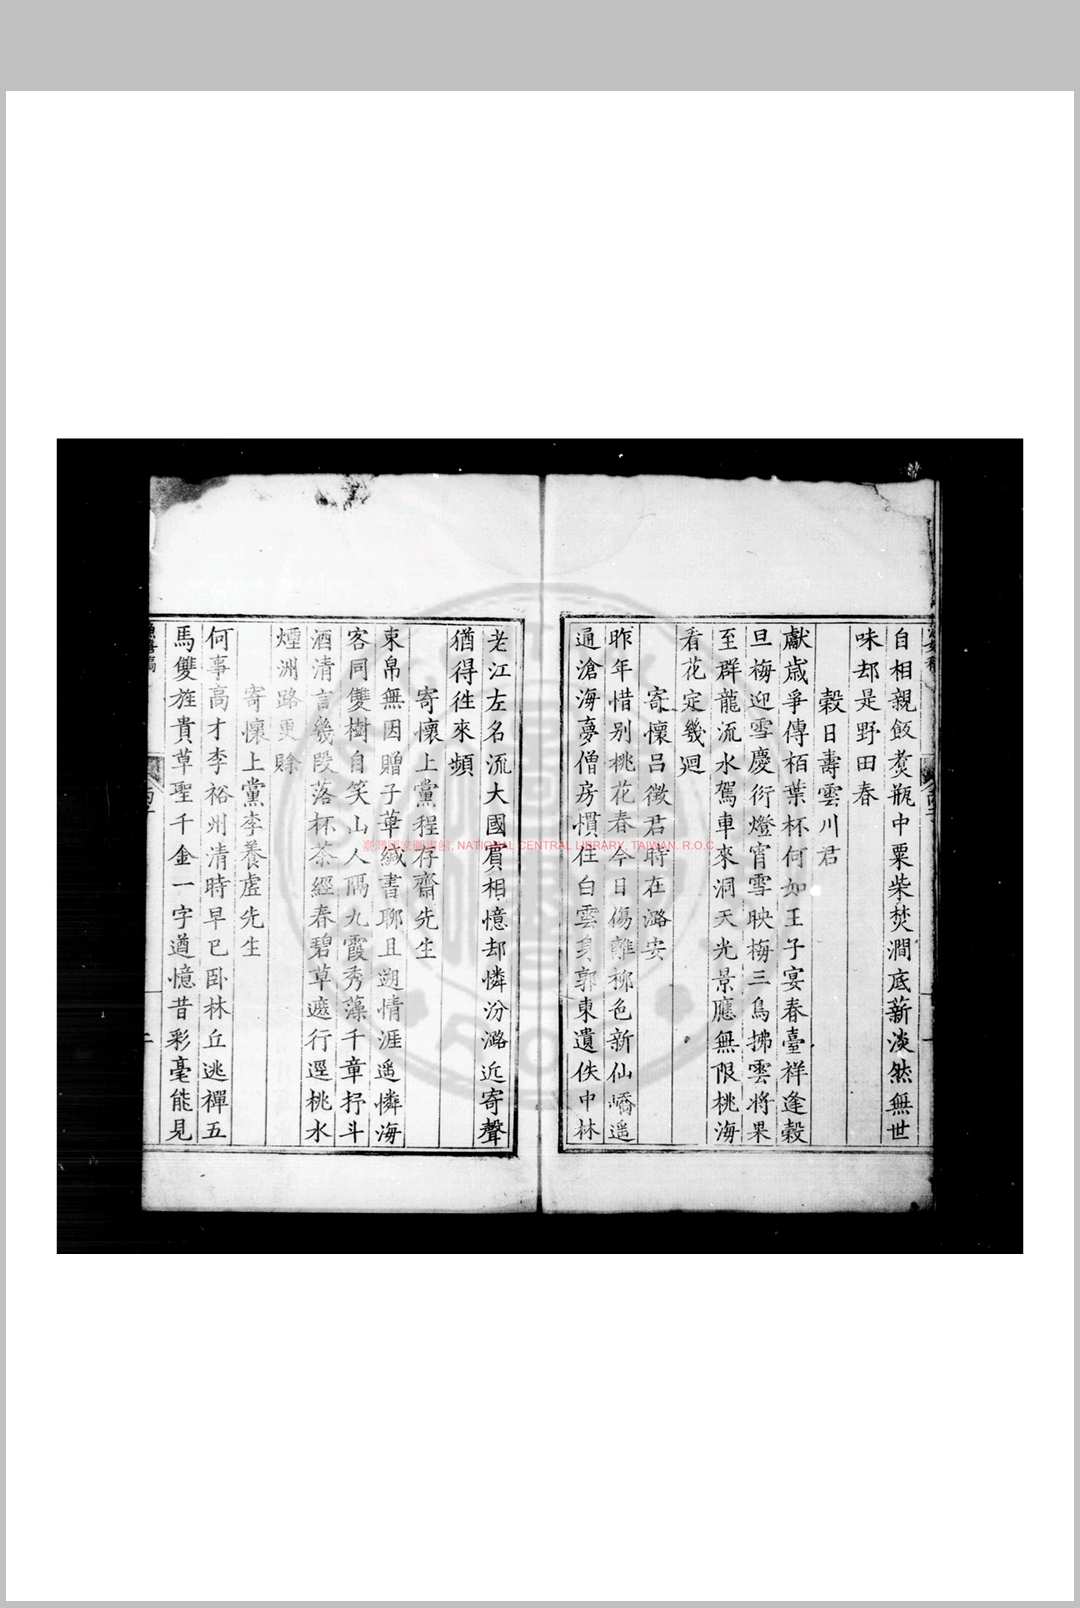 自相親飯煑瓶中粟柴焚澗底薪淡然無世
味却是野田春
穀日壽雲川君
獻歲爭傳栢葉杯何如王子宴春臺祥逢穀
旦梅迎雪慶衍燈宵雪映梅三鳥拂雲將果
至群龍流水駕車來洞天光景應無限桃海
看花定幾迴
寄懷呂徵君時在潞安
昨年惜别桃花春今日傷離柳色新仙嶠遥
通滄海夢僧房慣住白雲身郭東遺佚中林
老江左名流大國賔相憶却憐汾潞近寄聲
猶得往來頻
寄懷上黨程存齋先生
束帛無因贈子華緘書聊且遡情涯遥憐海
客同雙樹自笑山人隔九霞秀藻千章抒斗
酒清言幾段落杯茶經春碧草遮行逕桃水
煙洲路更賒
寄懷上黨李養虛先生
何事高才李裕州清時早已卧林丘逃禪五
馬雙旌貴草聖千金一字遒憶昔彩毫能見
NATIONAL CENTRAL LIBRARY, TAIWAN, R.O.C.